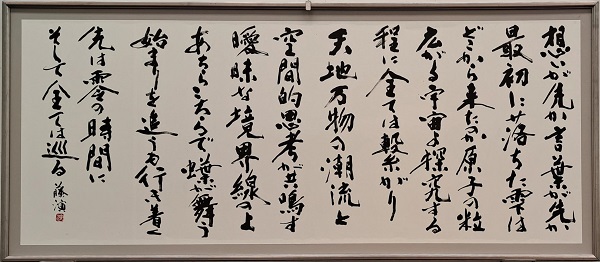 想いが先か言葉が先か
最初に落ちた雫は
どこから来たのか原子の粒
広がる宇宙の探究する
程に全ては繋がり
天地万物の潮流と
空間的思考が共鳴す
曖昧な境界線の上
あちらこちらで蝶が舞う
始まりを追うも行き着く
先は零の時間に
そして全ては巡る